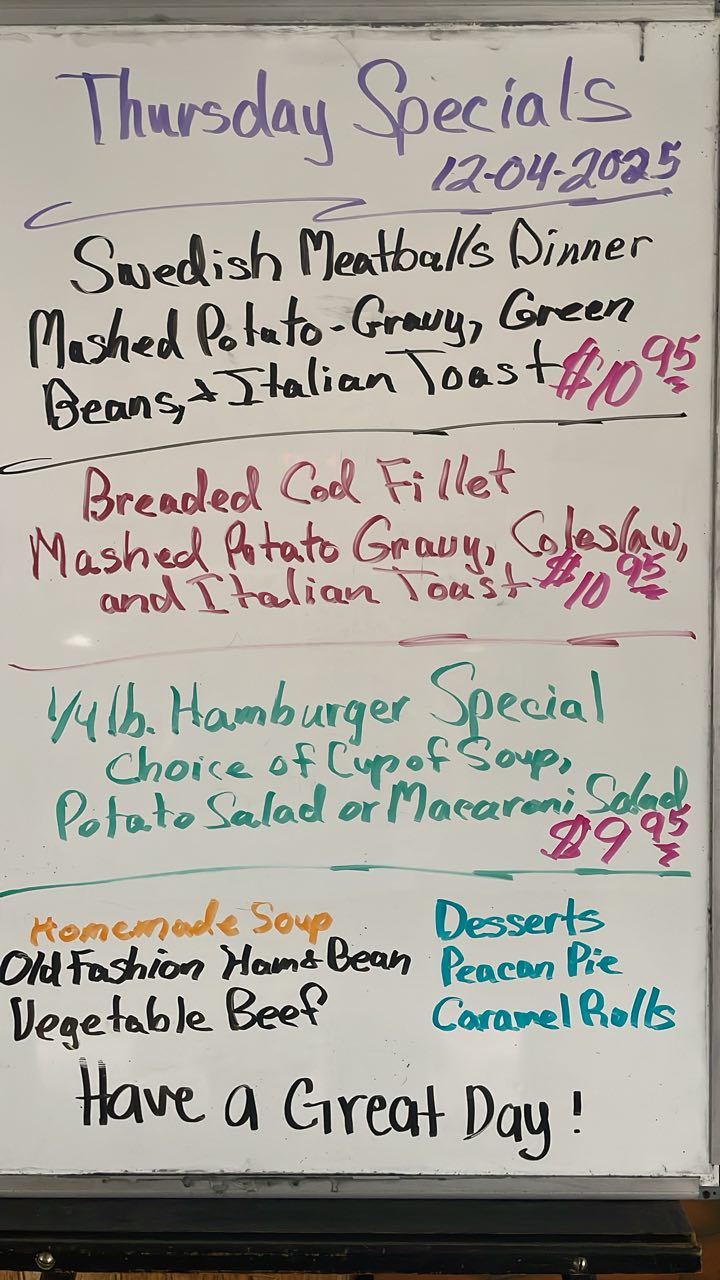 Thursday Specials
12-04-2025
Swedish Meatballs Dinner
Mashed Potato-Gravy, Green
Beans, & Italian Toast $10 95
Breaded Cod Fillet
Mashed Potato Gravy, Coleslaw,
and Italian Toast $10 95
1/4 lb. Hamburger Special
Choice of Cup of Soup,
Potato Salad or Macaroni Salad
$9 95
Homemade Soup
Old Fashion Ham & Bean
Vegetable Beef
Desserts
Peacan Pie
Caramel Rolls
Have a Great Day!